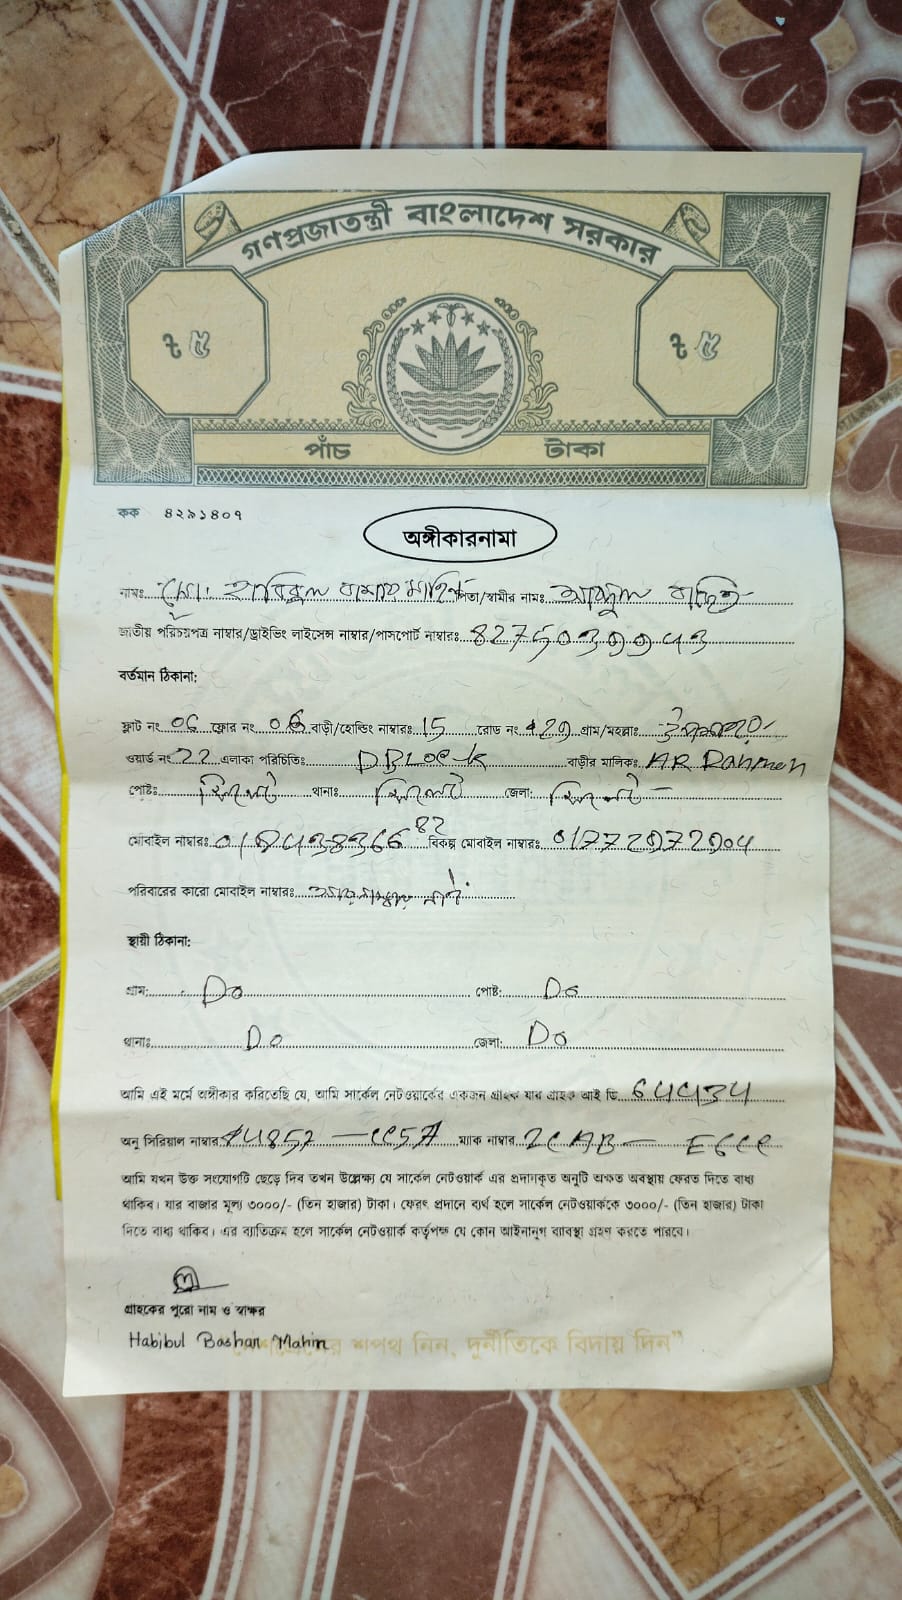 গণপ্রজাতন্ত্রী বাংলাদেশ সরকার
৳ ৫ ৳ ৫
পাঁচ টাকা
কক ৪২৯১৪০৭
অঙ্গীকারনামা
নামঃ মো: হাবিবুল বাশার মাহিন পিতা/স্বামীর নামঃ আব্দুল
জাতীয় পরিচয়পত্র নাম্বার/ড্রাইভিং লাইসেন্স নাম্বার/পাসপোর্ট নাম্বারঃ
বর্তমান ঠিকানা:
ফ্লাট নং 06 ফ্লোর নং 06 বাড়ী/হোল্ডিং নাম্বারঃ 15 রোড নং গ্রাম/মহল্লাঃ
ওয়ার্ড নং 22 এলাকা পরিচিতিঃ D BLock বাড়ীর মালিকঃ AR Rahman
পোষ্টঃ সিলেট থানাঃ সিলেট জেলা: সিলেট
মোবাইল নাম্বারঃ বিকল্প মোবাইল নাম্বারঃ
পরিবারের কারো মোবাইল নাম্বারঃ
স্থায়ী ঠিকানা:
গ্রাম: Do পোষ্ট: Do
থানাঃ Do জেলা: Do
আমি এই মর্মে অঙ্গীকার করিতেছি যে, আমি সার্কেল নেটওয়ার্কের একজন গ্রাহক যার গ্রাহক আই ডি
অনু সিরিয়াল নাম্বার ম্যাক নাম্বার
আমি যখন উক্ত সংযোগটি ছেড়ে দিব তখন উল্লেক্ষ্য যে সার্কেল নেটওয়ার্ক এর প্রদানকৃত অনুটি অক্ষত অবস্থায় ফেরত দিতে বাধ্য
থাকিব। যার বাজার মূল্য ৩০০০/- (তিন হাজার) টাকা। ফেরৎ প্রদানে ব্যর্থ হলে সার্কেল নেটওয়ার্ককে ৩০০০/- (তিন হাজার) টাকা
দিতে বাধ্য থাকিব। এর ব্যতিক্রম হলে সার্কেল নেটওয়ার্ক কর্তৃপক্ষ যে কোন আইনানুগ ব্যাবস্থা গ্রহণ করতে পারবে।
গ্রাহকের পুরো নাম ও স্বাক্ষর
Habibul Bashar Mahin শপথ নিন, দুর্নীতিকে বিদায় দিন"